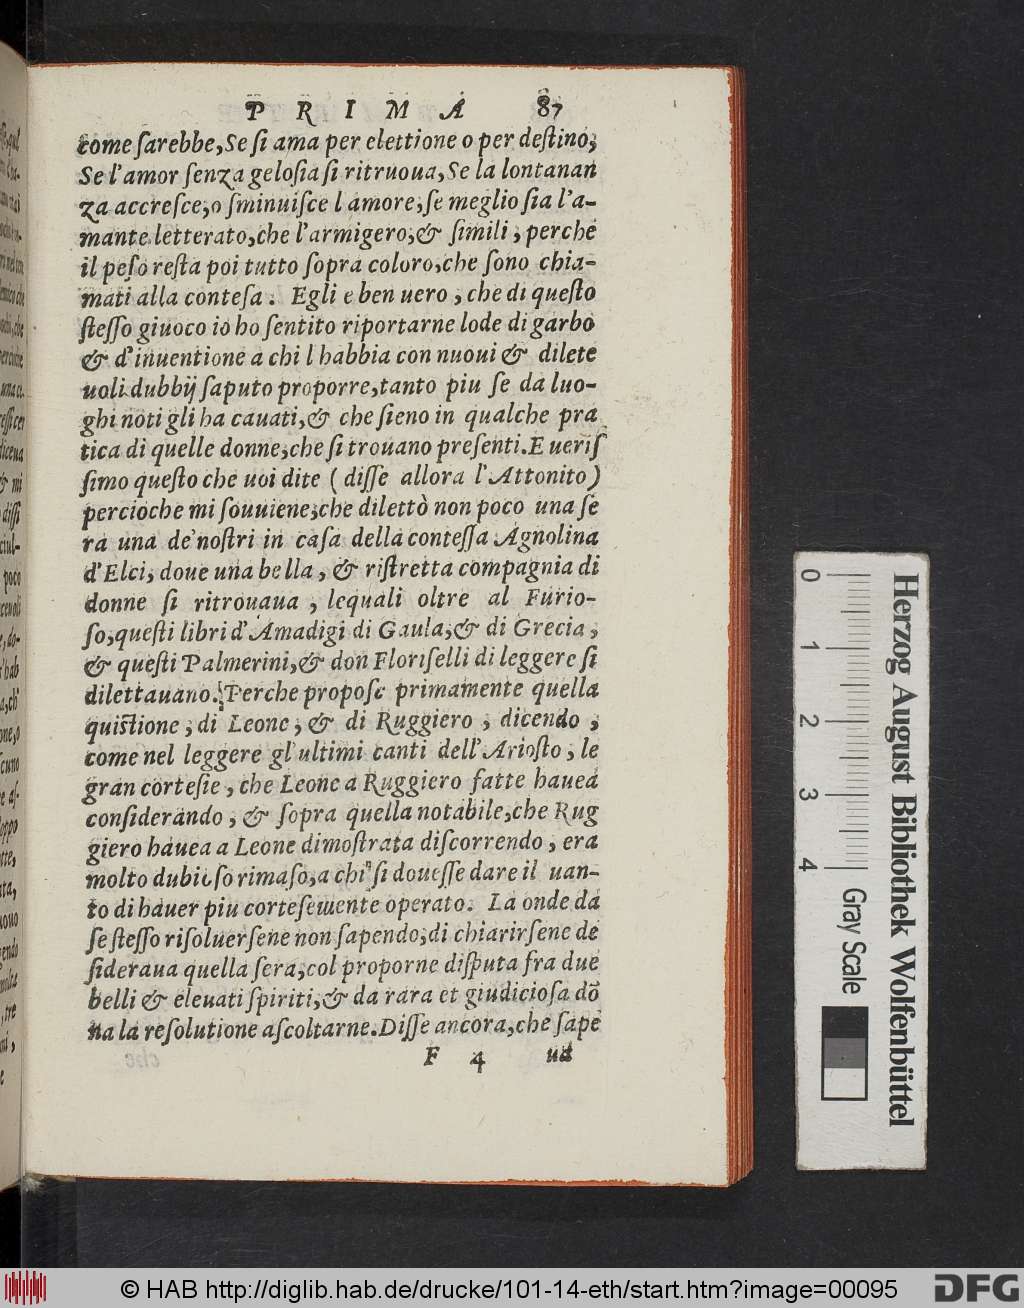 PRIMA 87
come ſarebbe, Se ſi ama per elettione o per deſtino;
Se l'amor ſenza geloſia ſi ritruoua, Se la lontanan
za accreſce, o ſminuiſce l amore, ſe meglio ſia l'a-
mante letterato, che l'armigero, & ſimili, perche
il peſo reſta poi tutto ſopra coloro, che ſono chia-
mati alla conteſa. Egli e ben uero, che di queſto
ſteſſo giuoco io ho ſentito riportarne lode di garbo
& d'inuentione a chi l habbia con nuoui & dilete
uoli dubbij ſaputo proporre, tanto piu ſe da luo-
ghi noti gli ha cauati, & che ſieno in qualche pra
tica di quelle donne, che ſi trouano preſenti. E ueriſ
ſimo queſto che uoi dite (diſſe allora l'Attonito)
percioche mi ſouuiene, che dilettò non poco una ſe
ra una de'noſtri in caſa della conteſſa Agnolina
d'Elci, doue una bella, & riſtretta compagnia di
donne ſi ritrouaua, lequali oltre al Furio-
ſo, queſti libri d'Amadigi di Gaula, & di Grecia,
& queſti Palmerini, & don Floriſelli di leggere ſi
dilettauano. Perche propoſe primamente quella
quistione, di Leone, & di Ruggiero, dicendo,
come nel leggere gl'ultimi canti dell'Arioſto, le
gran corteſie, che Leone a Ruggiero fatte hauea
conſiderando, & ſopra quella notabile, che Rug
giero hauea a Leone dimoſtrata diſcorrendo, era
molto dubioſo rimaſo, a chi ſi doueſſe dare il uan-
to di hauer piu corteſemente operato. La onde da
ſe ſteſſo riſoluerſene non ſapendo, di chiarirſene de
ſideraua quella ſera, col proporne diſputa fra due
belli & eleuati ſpiriti, & da rara et giudicioſa dõ
na la reſolutione aſcoltarne. Diſſe ancora, che ſape
F 4 ua
0 1 2 3 4
Gray Scale
Herzog August Bibliothek Wolfenbüttel
© HAB http://diglib.hab.de/drucke/101-14-eth/start.htm?image=00095
DFG